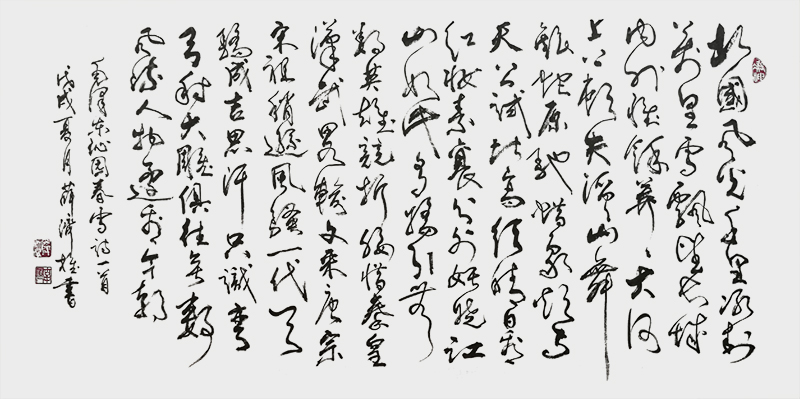 北國風光千里冰封
萬里雪飄望長城
內外惟餘莽莽大河
上下頓失滔滔山舞
銀蛇原馳蠟象欲與
天公試比高須晴日看
紅妝素裹分外妖嬈江
山如此多嬌引無
數英雄競折腰惜秦皇
漢武略輸文采唐宗
宋祖稍遜風騷一代天
驕成吉思汗只識彎
弓射大雕俱往矣數
風流人物還看今朝
毛澤東沁園春雪詩一首
戊戌夏月薛濟雄書